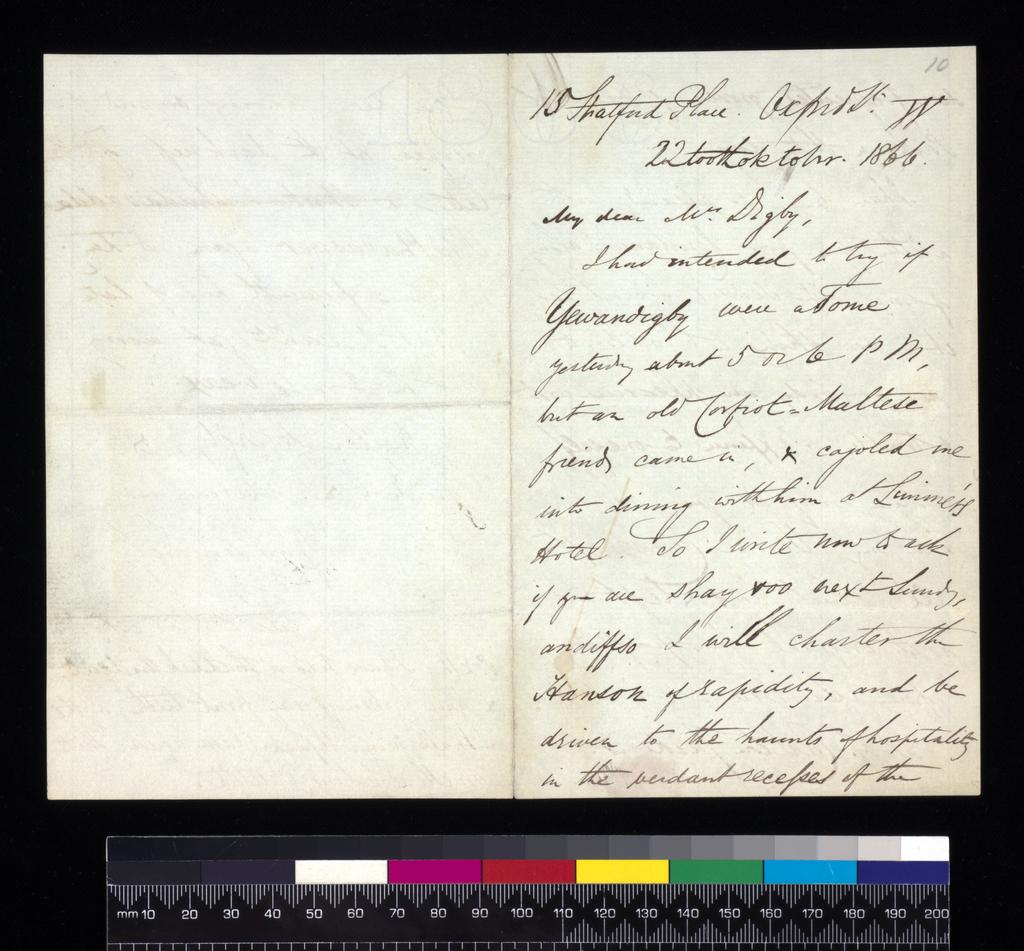 10
15 Stratford Place. Oxford St. W
22 toothoktobr. 1866.
My dear Mrs. Digby,
I had intended to try if
Yewandigby were atome
yesterday about 5 or 6 P M,
but an old Corfiot=Maltese
friend came in, & cajoled me
into dining with him at
Hotel. So I write now to ask
if you are shay voo next Sunday,
andiffso I will charter the
Hansom of rapidity, and be
driven to the haunts of hospitality
in the verdant recesses of the
mm 10 20 30 40 50 60 70 80 90 100 110 120 130 140 150 160 170 180 190 200